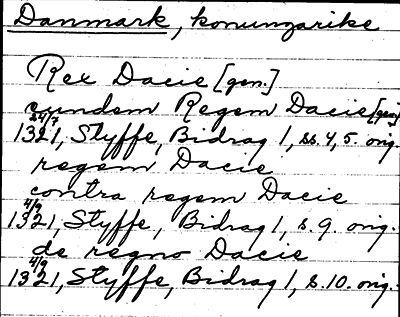 Danmark, konungarike
Rex Dacie [gen.]
eundem Regem Dacie [gen.]
24/7
1321, Styffe, Bidrag 1, ss. 4, 5. orig.
regem Dacie
contra regem Dacie
4/9
1321, Styffe, Bidrag 1, s. 9. orig.
de regno Dacie
4/9
1321, Styffe, Bidrag 1, s. 10. orig.